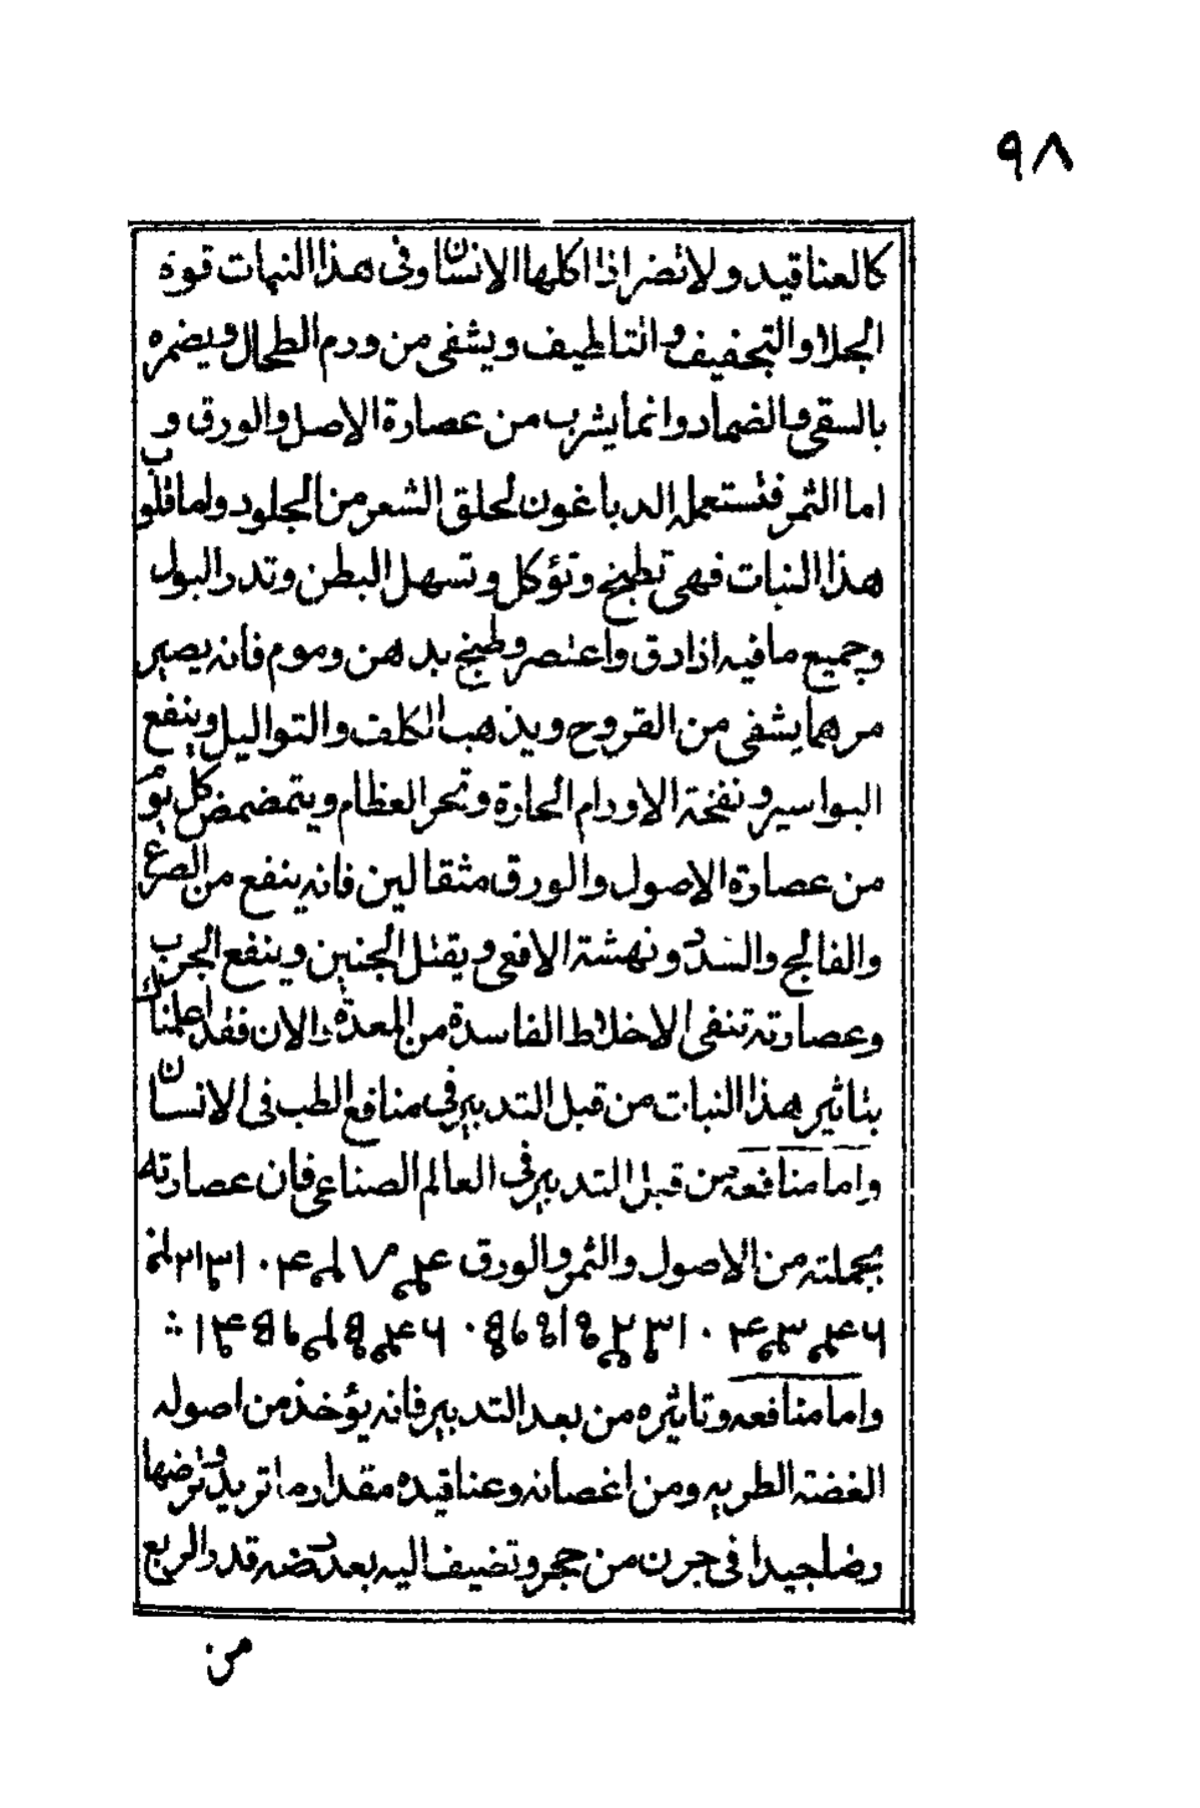 ٩٨
كالعناقيد ولا تضر اذا اكلها الانسان وفى هذا النبات قوة
الجلا والتجفيف والتلطيف ويشفى من ورم الطحال ويضمره
بالسقى والضماد وانما يشرب من عصارة الاصل والورق و
اما الثمر فتستعمله الدباغون لحلق الشعر من الجلود ولما قلوب
هذا النبات فهى تطبخ وتؤكل وتسهل البطن وتدر البول
وجميع ما فيه اذا دق واعتصر وطبخ بدهن وموم فانه يصير
مرهما يشفى من القروح ويذهب الكلف والتواليل وينفع
البواسير ونفخة الاورام الحارة ونحر العظام ويتمضمض كل يوم
من عصارة الاصول والورق مثقالين فانه ينفع من الصرع
والفالج والسدد ونهشة الافعى ويقتل الجنين وينفع الجرب
وعصارته تنفى الاخلاط الفاسدة من المعدة والان فقد اعلمناك
بتاثير هذا النبات من قبل التدبير فى منافع الطب فى الانسان
واما منافعه من قبل التدبير فى العالم الصناعى فان عصارته
بجملته من الاصول والثمر والورق
واما منافعه وتاثيره من بعد التدبير فانه يؤخذ من اصوله
الغضة الطريه ومن اغصانه وعناقيده مقدار ما تريد وترضها
رضا جيدا فى جرن من حجر وتضيف اليه بعد رضه قدر الربع
من